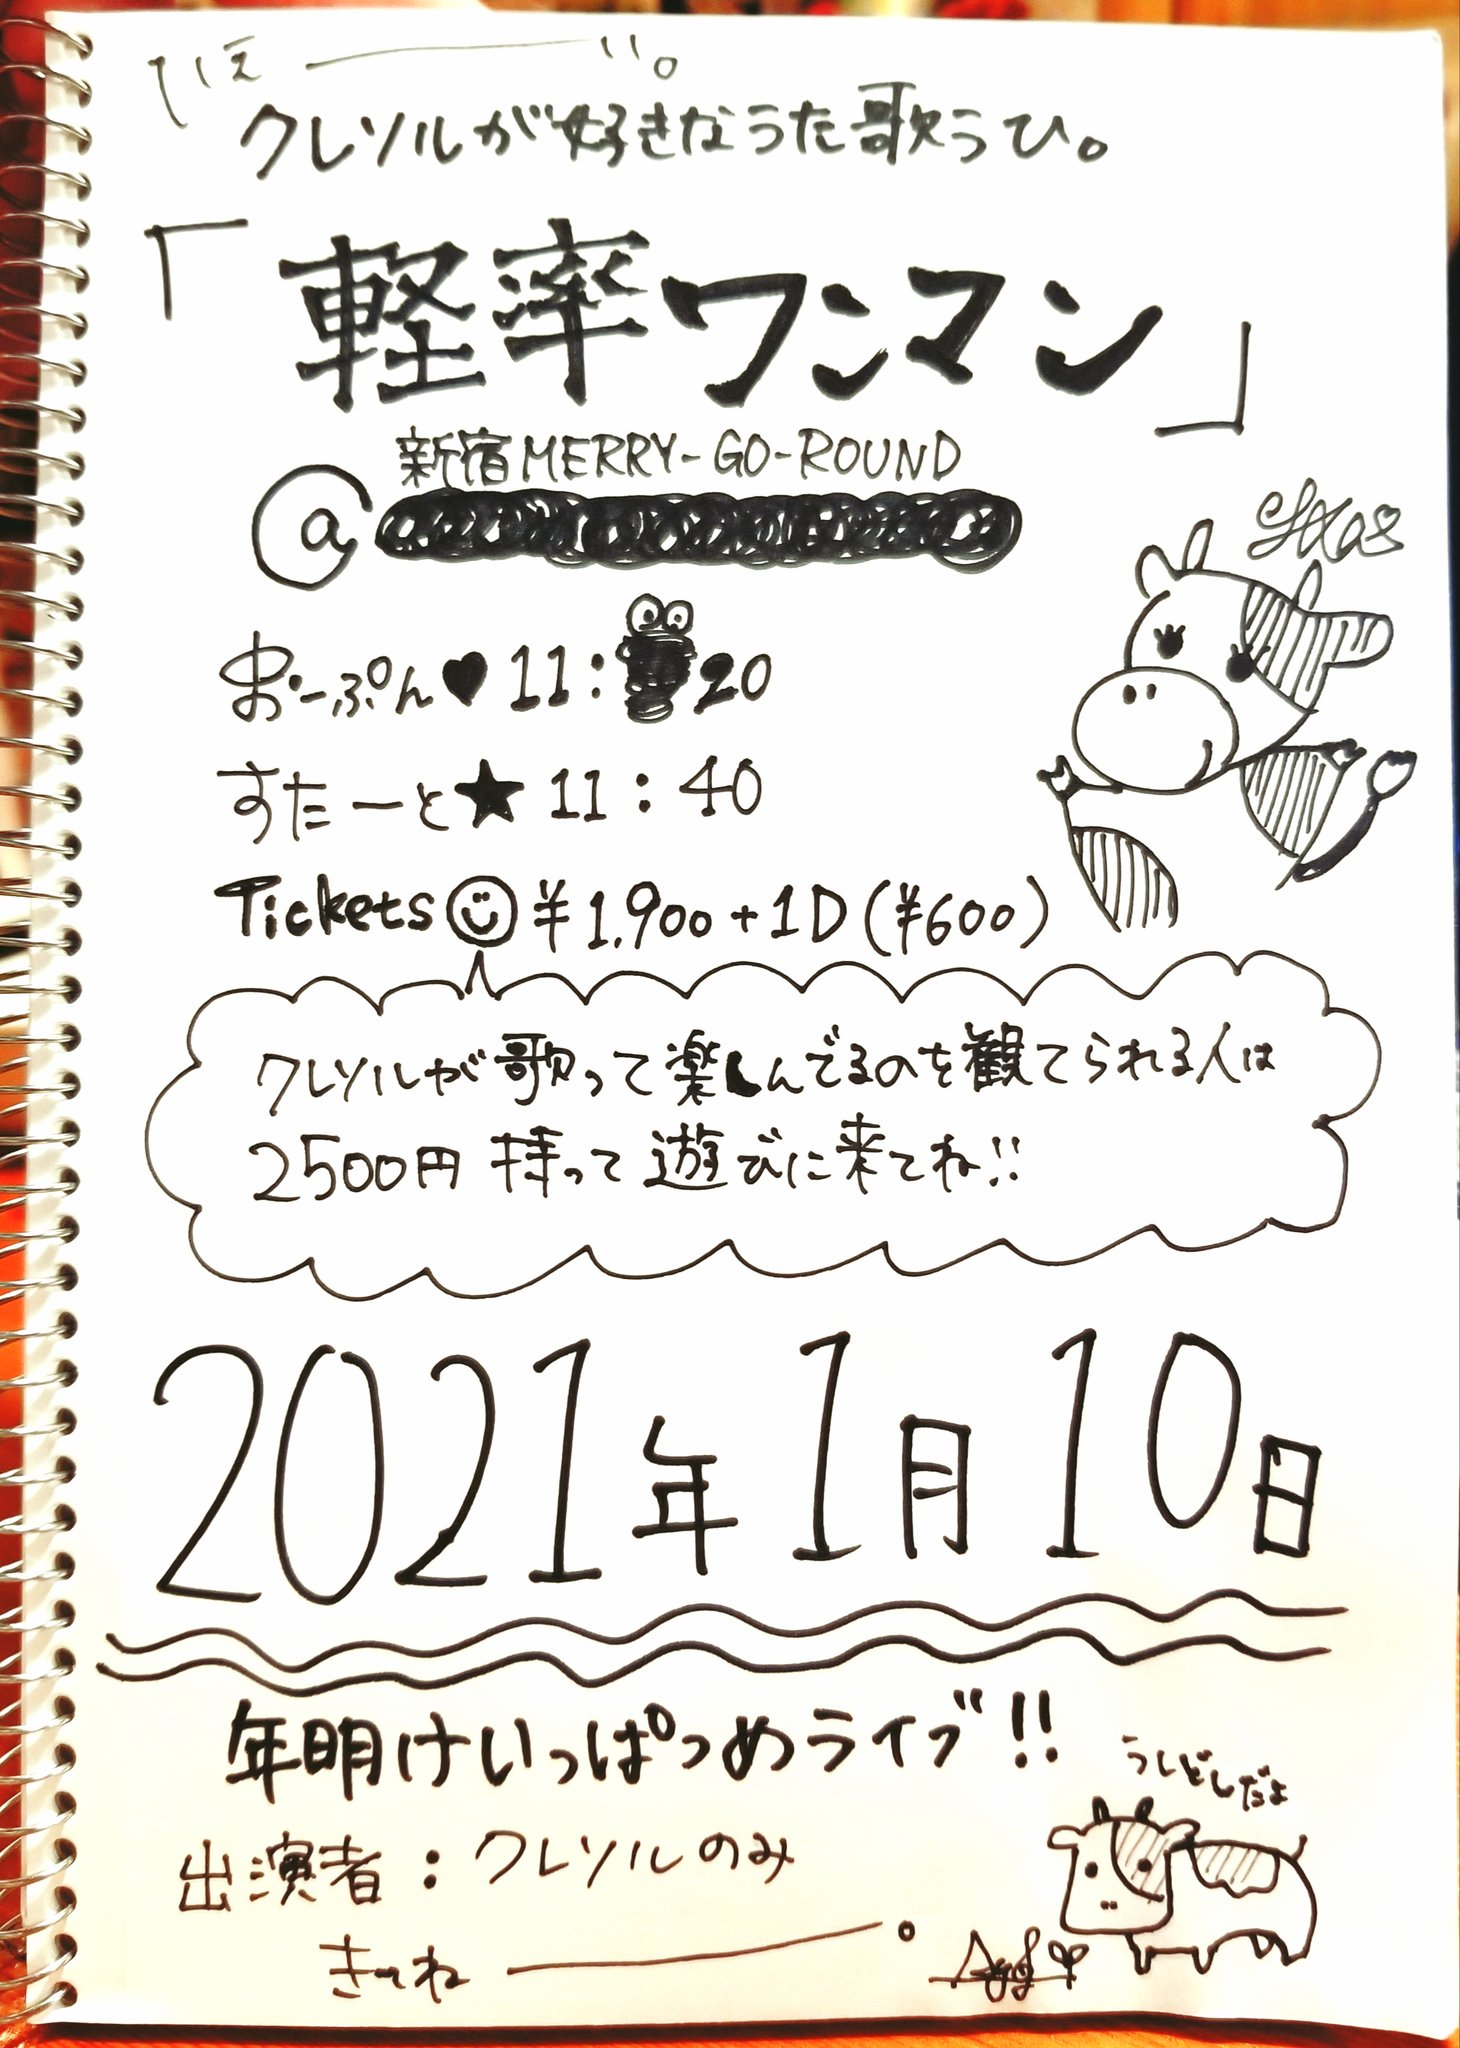 いえ———い。
クレソルが好きなうた歌うひ。
「軽率ワンマン」
新宿MERRY-GO-ROUND
@
おーぷん♥11:20
すたーと★11:40
Tickets☺¥1,900+1D(¥600)
クレソルが歌って楽しんでるのを観てられる人は
2500円持って遊びに来てね!!
2021年1月10日
年明けいっぱつめライブ!!
うしどしだよ
出演者:クレソルのみ
きてね———。